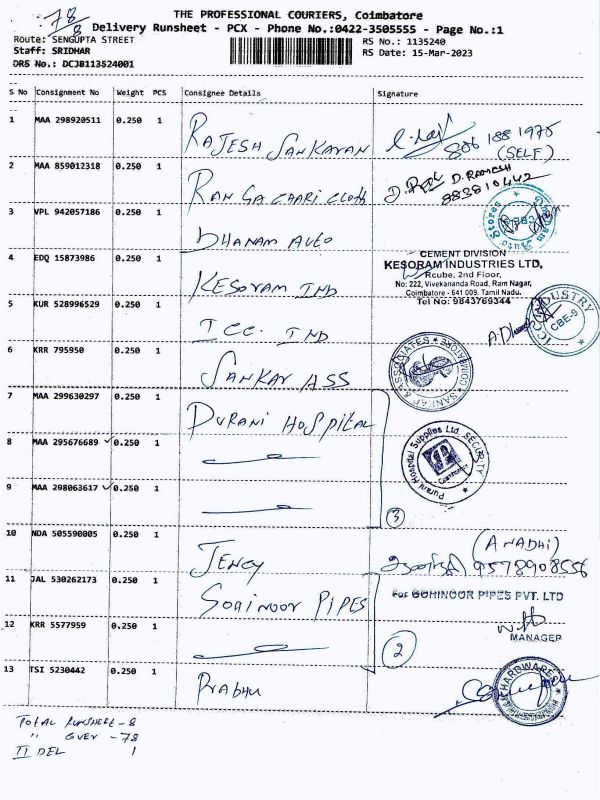 78/8
THE PROFESSIONAL COURIERS, Coimbatore
Delivery Runsheet - PCX - Phone No.:0422-3505555 - Page No.:1
Route: SENGUPTA STREET
RS No.: 1135240
Staff: SRIDHAR
RS Date: 15-Mar-2023
DRS No.: DCJB113524001
S No Consignment No Weight PCS Consignee Details Signature
1 MAA 298920511 0.250 1 RAJESH SANKARAN
886 188 1975
(SELF)
2 MAA 859012318 0.250 1 RANGACHARI CLOTH D. RAMESH
883810442
3 VPL 942057186 0.250 1 DHANAM AUTO
4 EDQ 15873986 0.250 1 KESORAM IND
CEMENT DIVISION
KESORAM INDUSTRIES LTD,
Rcube, 2nd Floor,
No: 222, Vivekananda Road, Ram Nagar,
Coimbatore - 641 009. Tamil Nadu.
Tel No: 9843769344
5 KUR 528996529 0.250 1 ICC. IND
CBE-9
6 KRR 795950 0.250 1 SANKAR ASS
SANKAR & ASSOCIATES COIMBATORE
7 MAA 299630297 0.250 1 PURANI HOSPITAL
Purani Hospital Supplies Ltd SECURITY
8 MAA 295676689 0.250 1
9 MAA 298063617 0.250 1
3
10 NDA 505590005 0.250 1 JENCY (ANADHI)
9578908556
11 JAL 530262173 0.250 1 SOHINOOR PIPES
For GOHINOOR PIPES PVT. LTD
12 KRR 5577959 0.250 1
MANAGER
2
13 TSI 5230442 0.250 1 PRABHU
HARDWARE
TOTAL RUNSHEET - 8
" COVER - 78
TI DEL 1